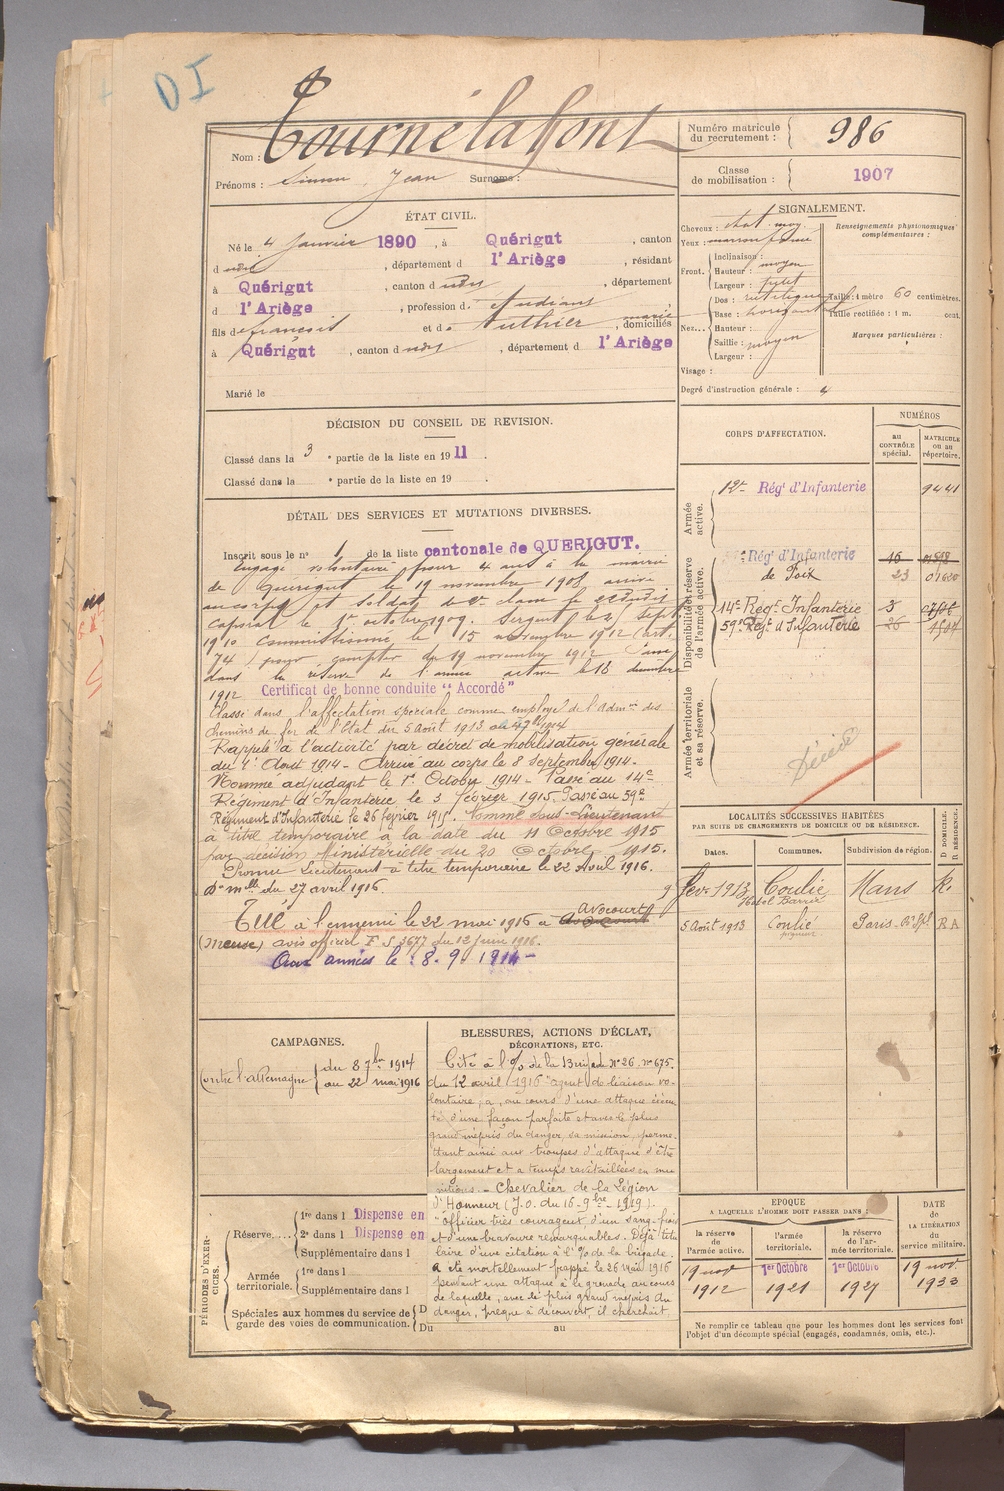 DI
Nom : Tournélafont
Prénoms : Simon, Jean Surnoms :
Numéro matricule du recrutement : 986
Classe de mobilisation : 1907
ÉTAT CIVIL.
Né le 4 Janvier 1890, à Quérigut, canton
d udit, département d l'Ariège, résidant
à Quérigut, canton d udit, département
d l'Ariège, profession d' étudiant
fils de françois et de Authier marie, domiciliés
à Quérigut, canton d udit, département d l'Ariège
Marié le
SIGNALEMENT.
Cheveux : chat. moy.
Yeux : marron foncé
Front. Inclinaison :
Hauteur : moyen
Largeur : petit
Nez... Dos : rectiligne
Base : horizontal
Hauteur :
Saillie : moyen
Largeur :
Visage :
Renseignements physionomiques complémentaires :
Taille : 1 mètre 60 centimètres.
Taille rectifiée : 1 m. cent.
Marques particulières :
Degré d'instruction générale : 4
DÉCISION DU CONSEIL DE REVISION.
Classé dans la 3e partie de la liste en 1911.
Classé dans la e partie de la liste en 19 .
DÉTAIL DES SERVICES ET MUTATIONS DIVERSES.
Inscrit sous le n° 1 de la liste cantonale de QUERIGUT.
Engagé volontaire pour 4 ans à la mairie
de Quérigut le 19 novembre 1908 arrivé
au corps et soldat de 2e classe le
caporal le 1er octobre 1909. Sergent le 2 sept.
1910 commissionné le 15 novembre 1912 (art.
74) pour compter du 19 novembre 1912 Passé
dans la réserve de l'armée active le 18 décembre
1912 Certificat de bonne conduite "Accordé"
Classé dans l'affectation spéciale comme employé de l'Admon des
chemins de fer de l'Etat du 5 Août 1913 au 7 1914
Rappelé à l'activité par décret de mobilisation générale
du 1er Août 1914 - Arrivé au corps le 8 septembre 1914 -
Nommé adjudant le 1er Octobre 1914 - Passé au 14e
Régiment d'Infanterie le 5 février 1915. Passé au 59e
Régiment d'Infanterie le 26 février 1915. Nommé sous-Lieutenant
à titre temporaire à la date du 11 Octobre 1915
par décision Ministérielle du 20 Octobre 1915.
Promu Lieutenant à titre temporaire le 22 Avril 1916.
Dn mlle du 27 avril 1916.
Tué à l'ennemi le 22 mai 1916 à Avocourt
(Meuse) avis officiel F S 3677 du 12 Juin 1916.
Aux armées le : 8. 9. 1914 -
CORPS D'AFFECTATION.
NUMÉROS
au CONTRÔLE spécial.
MATRICULE ou au répertoire.
Armée active.
12e Régt d'Infanterie 9441
Disponibilité et réserve de l'armée active.
Régt d'Infanterie 16
de Foix 23
14e Régt Infanterie 3
59e Régt d'Infanterie
Armée territoriale et sa réserve.
Décédé
LOCALITÉS SUCCESSIVES HABITÉES
PAR SUITE DE CHANGEMENTS DE DOMICILE OU DE RÉSIDENCE.
Dates. Communes. Subdivision de région. D DOMICILE. R RÉSIDENCE.
9 févr 1913 Coulie Mans R.
Hotel Barrier
5 Août 1913 Conlie Paris RA
CAMPAGNES.
Contre l'allemagne du 8 7bre 1914
au 22 mai 1916
BLESSURES, ACTIONS D'ÉCLAT,
DÉCORATIONS, ETC.
Cité à l'% de la brigade N° 26. n° 675.
du 12 avril 1916 "agent de liaison vo-
lontaire, a, au cours d'une attaque exécu-
té d'une façon parfaite et avec le plus
grand mépris du danger sa mission, perme-
ttant ainsi aux troupes d'attaque d'être
largement et à temps ravitaillées en mu-
nitions. - Chevalier de la Légion
d'Honneur (J.O. du 16-9bre-1919).
"Officier très courageux d'un sang-froid
et d'une bravoure remarquables. Déjà titu-
laire d'une citation à l'% de la brigade.
A été mortellement frappé le 26 Mai 1916
pendant une attaque à la grenade au cours
de laquelle, avec le plus grand mépris du
danger, presque à découvert, il cherchait
PÉRIODES D'EXERCICES.
Réserve.... 1re dans l Dispense en
2e dans l Dispense en
Supplémentaire dans l
Armée territoriale. 1re dans l
Supplémentaire dans l
Spéciales aux hommes du service de garde des voies de communication. D
Du au
EPOQUE
A LAQUELLE L'HOMME DOIT PASSER DANS :
la réserve de l'armée active. l'armée territoriale. la réserve de l'armée territoriale.
DATE de LA LIBÉRATION du service militaire.
19 nov. 1er Octobre 1er Octobre 19 nov.
1912 1921 1927 1933
Ne remplir ce tableau que pour les hommes dont les services font
l'objet d'un décompte spécial (engagés, condamnés, omis, etc.).